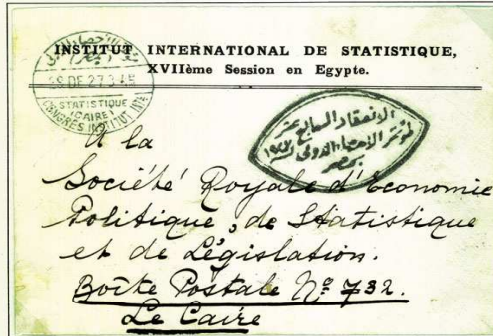 INSTITUT INTERNATIONAL DE STATISTIQUE,
XVIIème Session en Egypte.
28 DE 27
STATISTIQUE
(CAIRE)
CONGRÈS INSTITUT INTE
الانعقاد السابع عشر
لمؤتمر الإحصاء الدولى
بمصر
A la
Société Royale d'Économie
Politique, de Statistique
et de Législation.
Boîte Postale Nº 732.
Le Caire